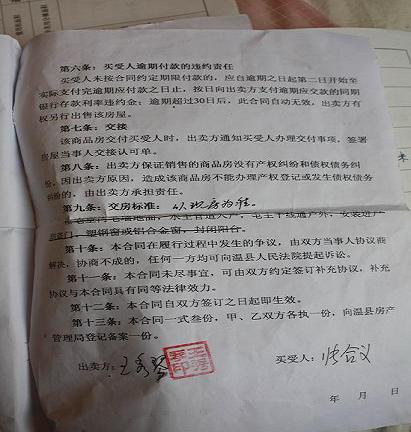 第六条：买受人逾期付款的违约责任
买受人未按合同约定期限付款的，应自逾期之日起第二日开始至
实际支付完逾期应付款之日止，按日向出卖方支付逾期应交款的同期
银行存款利率违约金；逾期超过30日后，此合同自动无效，出卖方有
权另行出售该房屋。
第七条：交接
该商品房交付买受人时，出卖方通知买受人办理交付事项，签署
房屋当事人交接认可单。
第八条：出卖方保证销售的商品房没有产权纠纷和债权债务纠
纷，因出卖方原因，造成该商品房不能办理产权登记或发生债权债务
纠纷的，由出卖方承担责任。
第九条：交房标准：以现房为准。
毛墙毛地面，水主管道入户，电主干线通户外，安装进户
门，塑钢窗或铝合金窗，封闭阳台。
第十条：本合同在履行过程中发生的争议，由双方当事人协议商
解决，协商不成的，任何一方均可向温县人民法院提起诉讼。
第十一条：本合同未尽事宜，可由双方约定签订补充协议，补充
协议与本合同具有同等法律效力。
第十二条：本合同自双方签订之日起即生效。
第十三条：本合同一式叁份，甲、乙双方各执一份，向温县房产
管理局登记备案一份。
出卖方：王
买受人：张合义
年 月 日